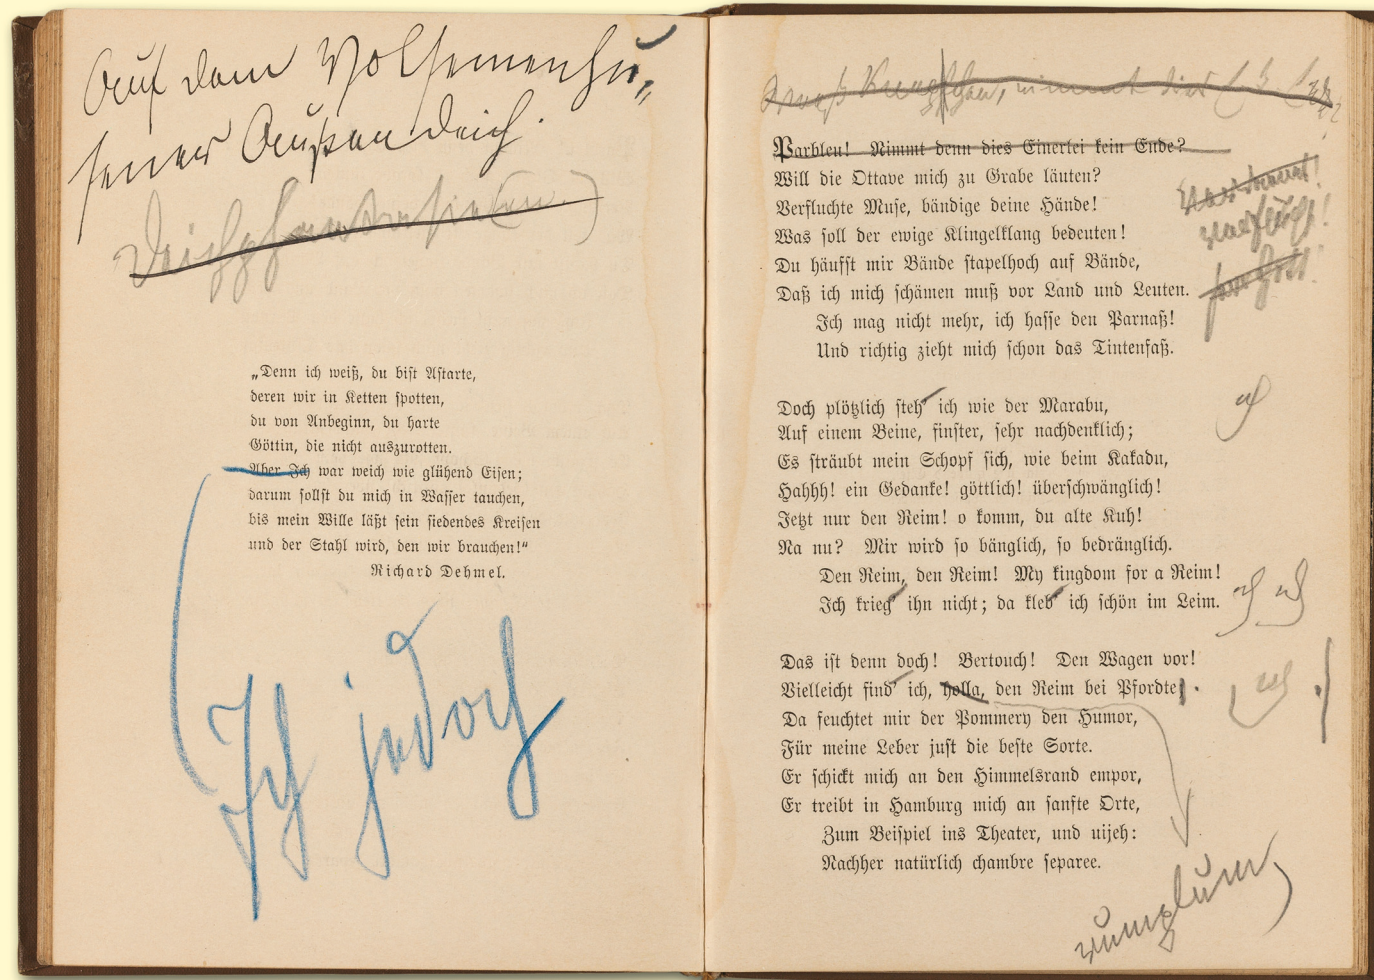 Auf dem Volsemenhu-
sener Außendeich.
Deichphantasie(en.)
„Denn ich weiß, du bist Astarte,
deren wir in Ketten spotten,
du von Anbeginn, du harte
Göttin, die nicht auszurotten.
Aber Ich war weich wie glühend Eisen;
darum sollst du mich in Wasser tauchen,
bis mein Wille läßt sein siedendes Kreisen
und der Stahl wird, den wir brauchen!“
Richard Dehmel.
Ich jedoch
nimmt dies
Parbleu! Nimmt denn dies Einerlei kein Ende?
Will die Ottave mich zu Grabe läuten?
Verfluchte Muse, bändige deine Hände!
Was soll der ewige Klingelklang bedeuten!
Du häufst mir Bände stapelhoch auf Bände,
Daß ich mich schämen muß vor Land und Leuten.
Ich mag nicht mehr, ich hasse den Parnaß!
Und richtig zieht mich schon das Tintenfaß.
Doch plötzlich steh' ich wie der Marabu,
Auf einem Beine, finster, sehr nachdenklich;
Es sträubt mein Schopf sich, wie beim Kakadu,
Hahhh! ein Gedanke! göttlich! überschwänglich!
Jetzt nur den Reim! o komm, du alte Kuh!
Na nu? Mir wird so bänglich, so bedränglich.
Den Reim, den Reim! My kingdom for a Reim!
Ich krieg' ihn nicht; da kleb' ich schön im Leim.
Das ist denn doch! Bertouch! Den Wagen vor!
Vielleicht find' ich, holla, den Reim bei Pfordte.
Da feuchtet mir der Pommery den Humor,
Für meine Leber just die beste Sorte.
Er schickt mich an den Himmelsrand empor,
Er treibt in Hamburg mich an sanfte Orte,
Zum Beispiel ins Theater, und uijeh:
Nachher natürlich chambre separee.